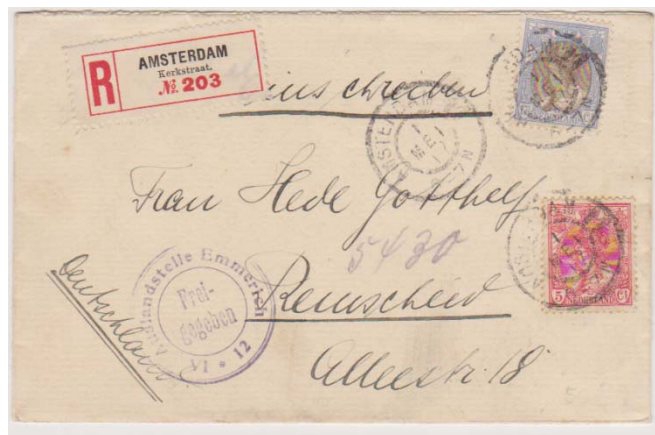 R
AMSTERDAM
Kerkstraat.
№ 203
Einschreiben
Frau Hede Gotthelf
5430
Remscheid
Alleestr. 18
Deutschland
Auslandstelle Emmerich
Frei-
gegeben
VI * 12
AMSTERDAM
5 NEDERLAND CT